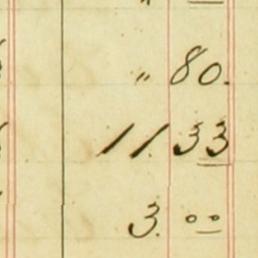 " 80.
11.33
3. 00